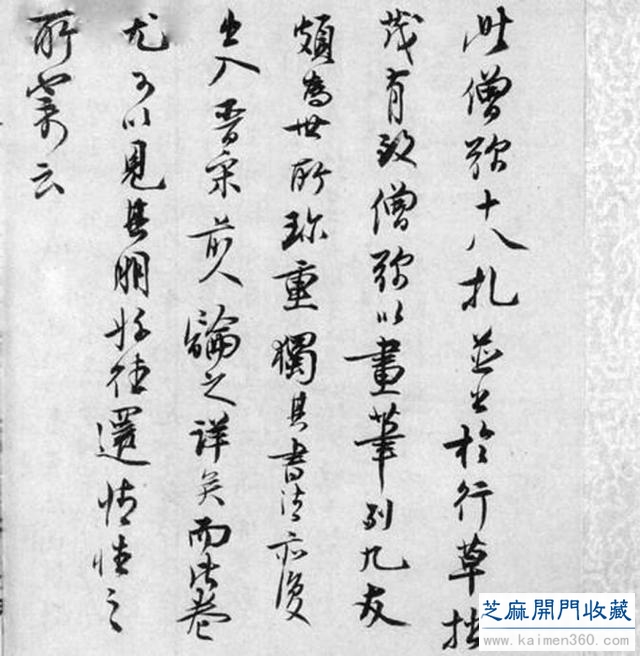 此僧弥十八札并公於行草拙
茂有致僧弥以畫筆列九友
頗為世所珍重獨其書法亦復
出入晋宋前人論之详矣而此卷
尤可以見其朋好往還情性之
所寄云
芝麻開門收藏
www.kaimen360.com